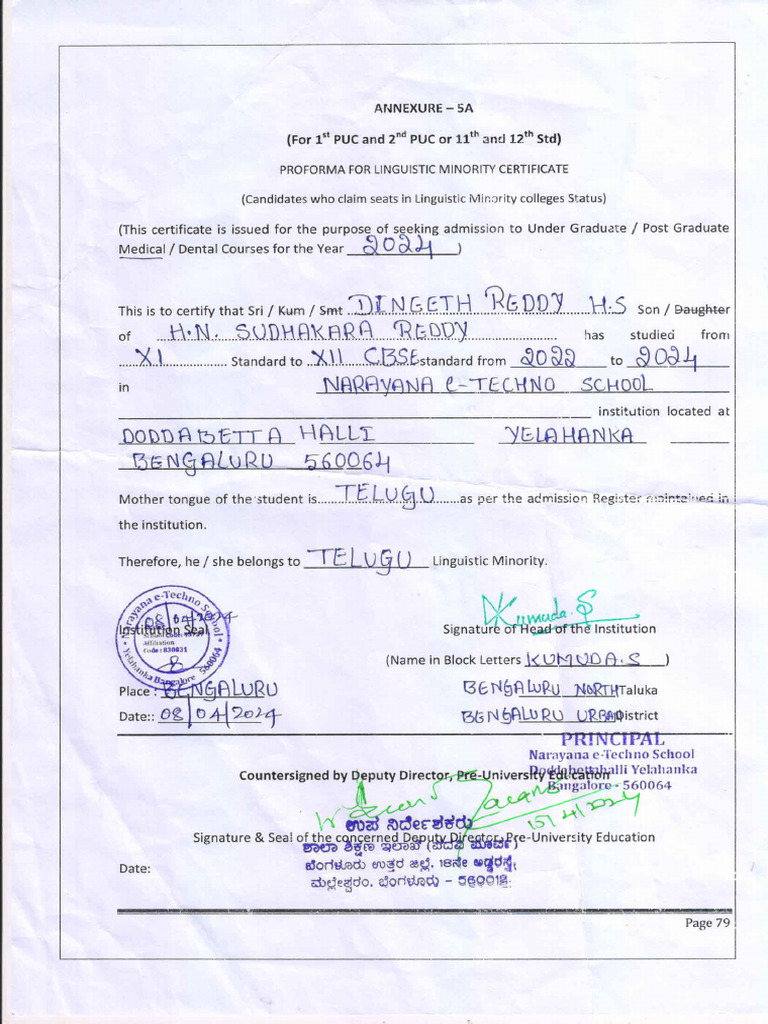 ANNEXURE – 5A
(For 1st PUC and 2nd PUC or 11th and 12th Std)
PROFORMA FOR LINGUISTIC MINORITY CERTIFICATE
(Candidates who claim seats in Linguistic Minority colleges Status)
(This certificate is issued for the purpose of seeking admission to Under Graduate / Post Graduate
Medical / Dental Courses for the Year 2024 )
This is to certify that Sri / Kum / Smt DINGETH REDDY H.S Son / Daughter
of H.N. SUDHAKARA REDDY has studied from
XI Standard to XII CBSE standard from 2022 to 2024
in NARAYANA e-TECHNO SCHOOL
institution located at
DODDABETTA HALLI YELAHANKA
BENGALURU 560064
Mother tongue of the student is TELUGU as per the admission Register maintained in
the institution.
Therefore, he / she belongs to TELUGU Linguistic Minority.
Narayana e-Techno School
08/04/2024
Institution Seal
Affiliation
Code : 830831
Yelahanka Bangalore 560064
Kumuda.S
Signature of Head of the Institution
(Name in Block Letters KUMUDA.S )
Place : BENGALURU
BENGALURU NORTH Taluka
Date:: 08/04/2024
BENGALURU URBAN District
PRINCIPAL
Narayana e-Techno School
Doddabettahalli Yelahanka
Bangalore - 560064
Countersigned by Deputy Director, Pre-University Education
15/4/2024
ಉಪ ನಿರ್ದೇಶಕರು
Signature & Seal of the concerned Deputy Director, Pre-University Education
ಶಾಲಾ ಶಿಕ್ಷಣ ಇಲಾಖೆ (ಪದವಿ ಪೂರ್ವ)
ಬೆಂಗಳೂರು ಉತ್ತರ ಜಿಲ್ಲೆ, 18ನೇ ಅಡ್ಡರಸ್ತೆ,
Date:
ಮಲ್ಲೇಶ್ವರಂ, ಬೆಂಗಳೂರು - 560012.
Page 79